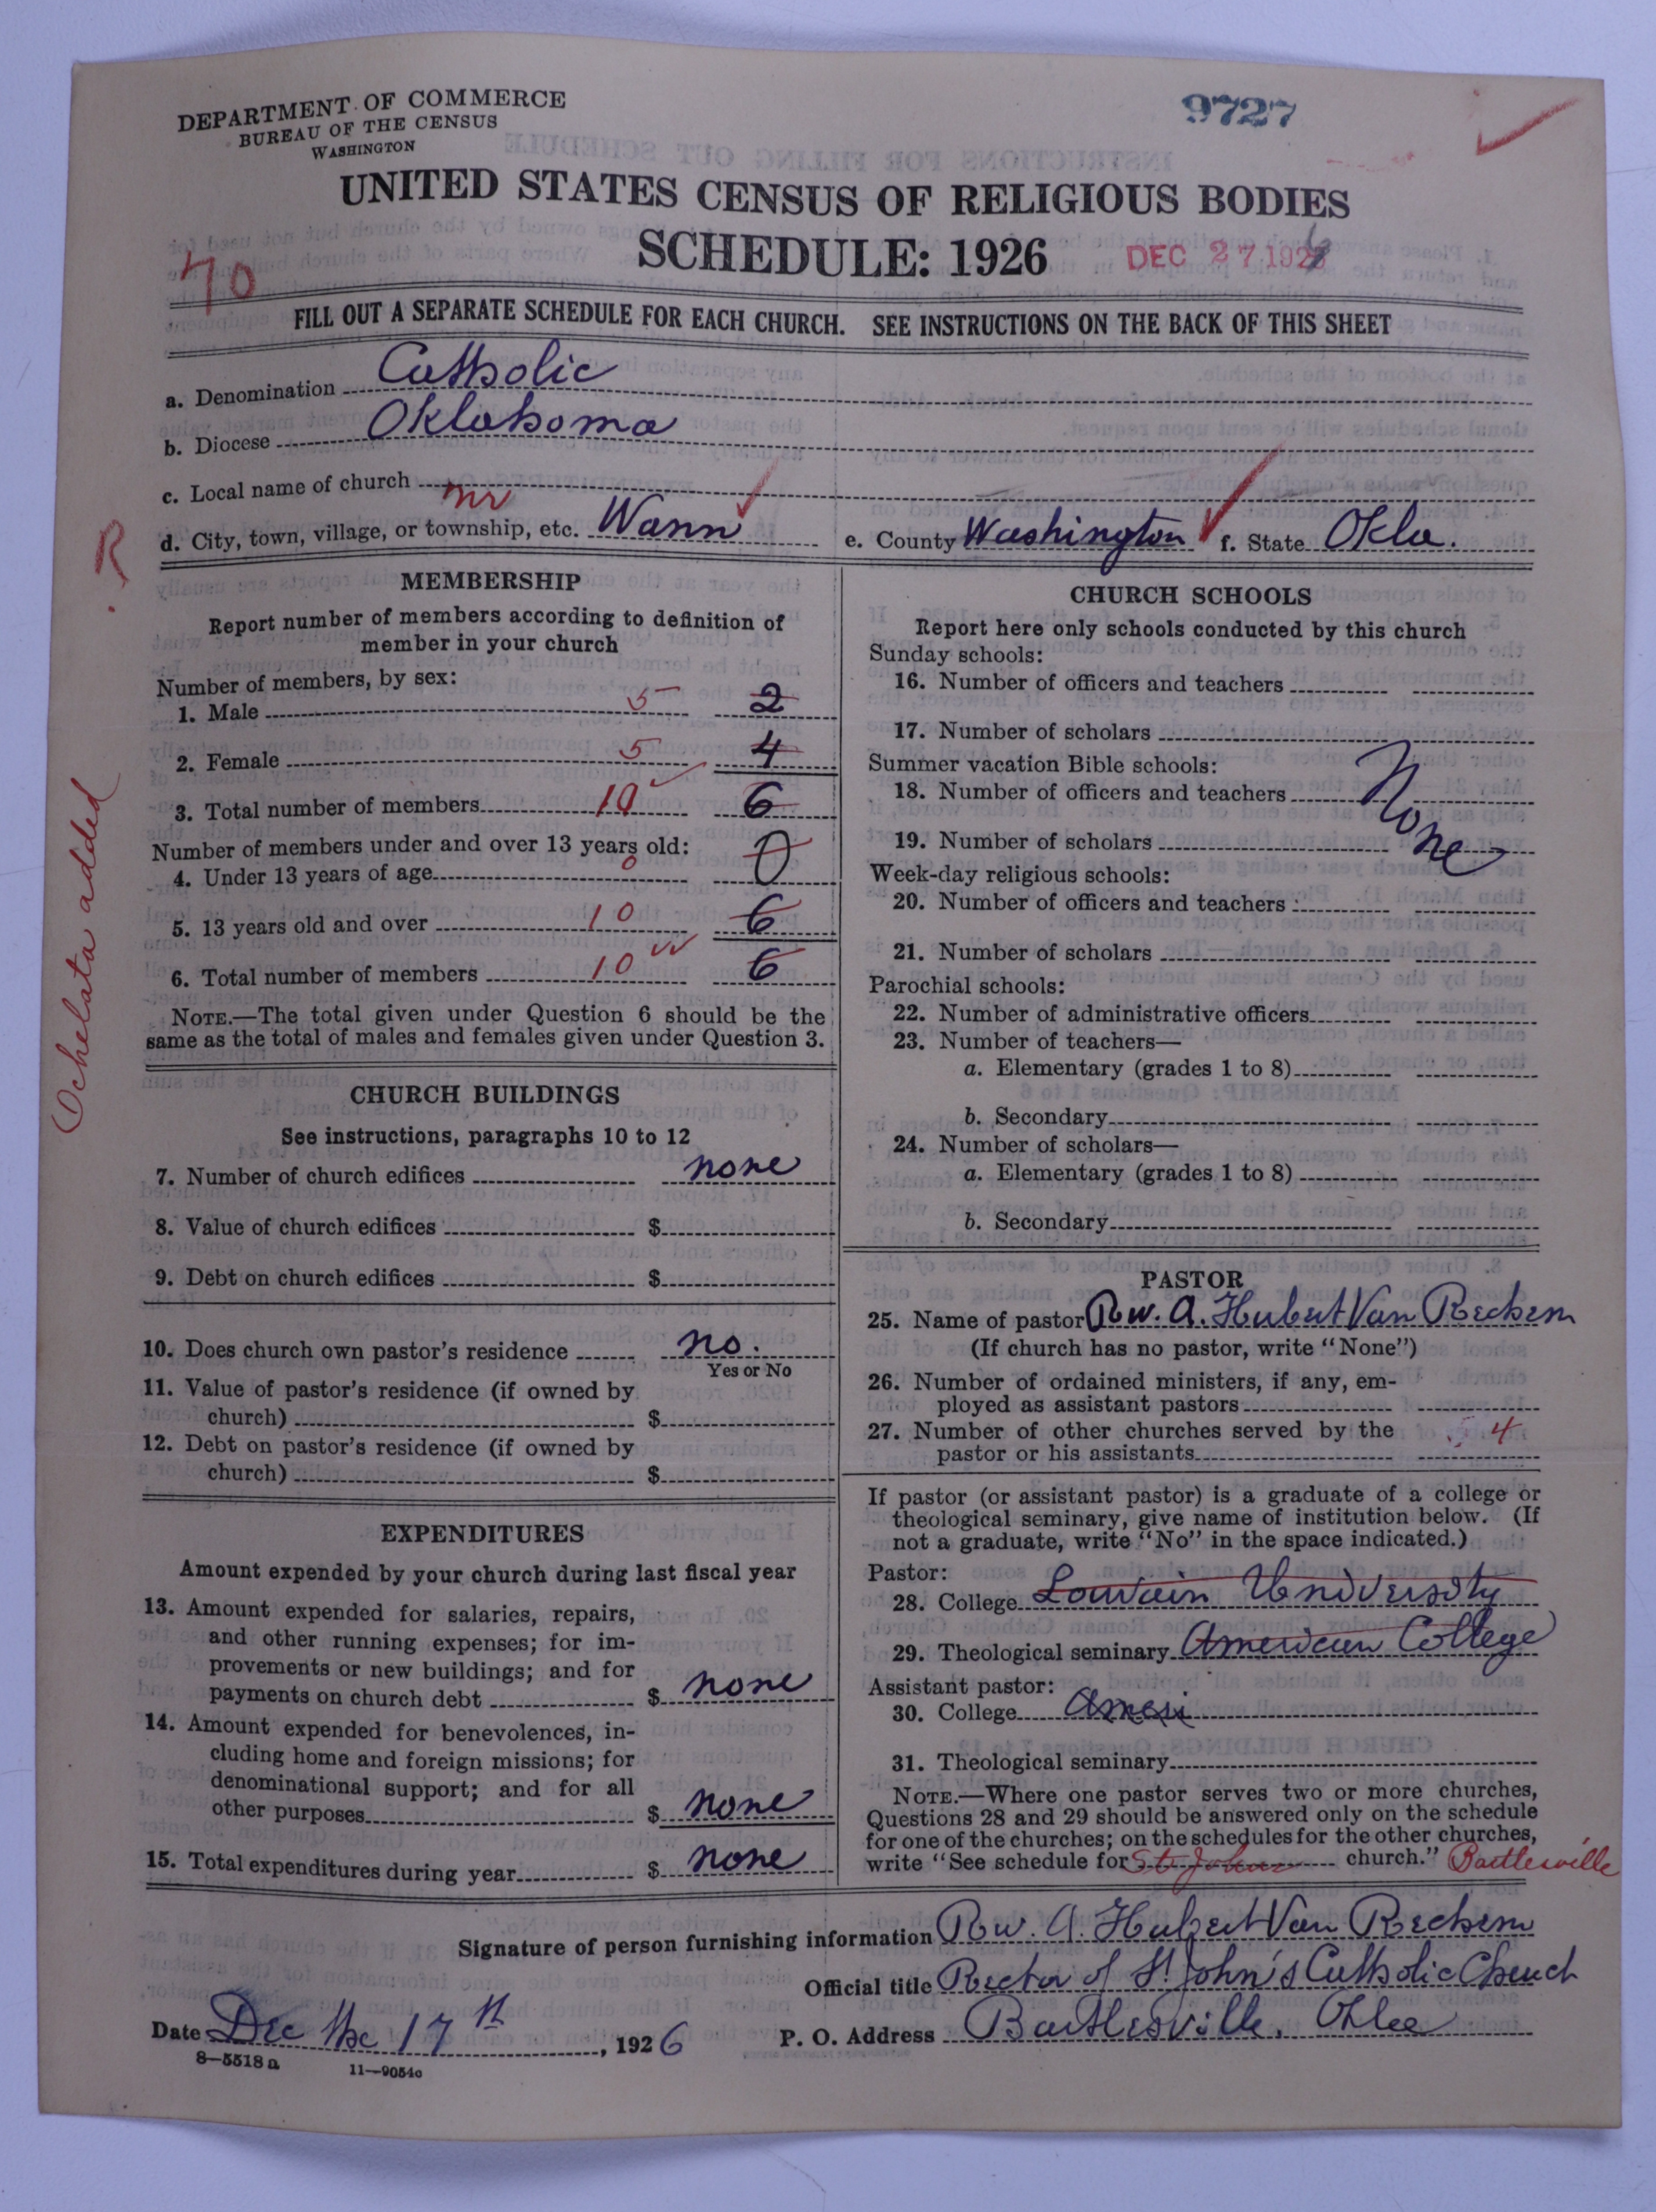 DEPARTMENT OF COMMERCE
BUREAU OF THE CENSUS
WASHINGTON
9727
UNITED STATES CENSUS OF RELIGIOUS BODIES
SCHEDULE: 1926
DEC 27 1926
70
FILL OUT A SEPARATE SCHEDULE FOR EACH CHURCH. SEE INSTRUCTIONS ON THE BACK OF THIS SHEET
a. Denomination Catholic
b. Diocese Oklahoma
c. Local name of church
nr
d. City, town, village, or township, etc. Wann e. County Washington f. State Okla.
R
Ochelata added
MEMBERSHIP
Report number of members according to definition of
member in your church
Number of members, by sex:
1. Male 5 2
2. Female 5 4
3. Total number of members 10 6
Number of members under and over 13 years old:
4. Under 13 years of age 0 0
5. 13 years old and over 10 6
6. Total number of members 10 6
NOTE.—The total given under Question 6 should be the
same as the total of males and females given under Question 3.
CHURCH BUILDINGS
See instructions, paragraphs 10 to 12
7. Number of church edifices none
8. Value of church edifices $
9. Debt on church edifices $
10. Does church own pastor's residence no.
Yes or No
11. Value of pastor's residence (if owned by
church) $
12. Debt on pastor's residence (if owned by
church) $
EXPENDITURES
Amount expended by your church during last fiscal year
13. Amount expended for salaries, repairs,
and other running expenses; for im-
provements or new buildings; and for
payments on church debt $ none
14. Amount expended for benevolences, in-
cluding home and foreign missions; for
denominational support; and for all
other purposes $ none
15. Total expenditures during year $ none
CHURCH SCHOOLS
Report here only schools conducted by this church
Sunday schools:
16. Number of officers and teachers
17. Number of scholars
Summer vacation Bible schools:
18. Number of officers and teachers None
19. Number of scholars
Week-day religious schools:
20. Number of officers and teachers
21. Number of scholars
Parochial schools:
22. Number of administrative officers
23. Number of teachers—
a. Elementary (grades 1 to 8)
b. Secondary
24. Number of scholars—
a. Elementary (grades 1 to 8)
b. Secondary
PASTOR
25. Name of pastor Rev. A. Hubert Van Rechem
(If church has no pastor, write "None")
26. Number of ordained ministers, if any, em-
ployed as assistant pastors
27. Number of other churches served by the
pastor or his assistants 4
If pastor (or assistant pastor) is a graduate of a college or
theological seminary, give name of institution below. (If
not a graduate, write "No" in the space indicated.)
Pastor:
28. College Louvain University
29. Theological seminary American College
Assistant pastor:
30. College Ameri
31. Theological seminary
NOTE.—Where one pastor serves two or more churches,
Questions 28 and 29 should be answered only on the schedule
for one of the churches; on the schedules for the other churches,
write "See schedule for St. Johns church." Bartlesville
Signature of person furnishing information Rev. A. Hubert Van Rechem
Official title Rector of St. John's Catholic Church
Date Dec the 17th, 1926 P. O. Address Bartlesville, Okla
8—5518 a 11—9054c